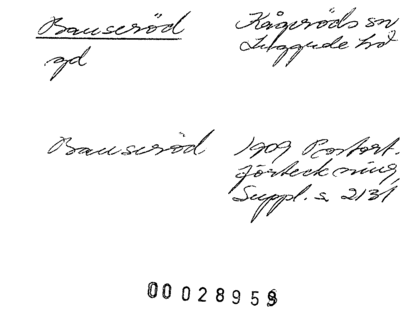 Bauseröd Kågeröds sn
gd Luggude hd
Bauseröd 1909 Postort.
förteckning,
Suppl. s. 2131
00028959